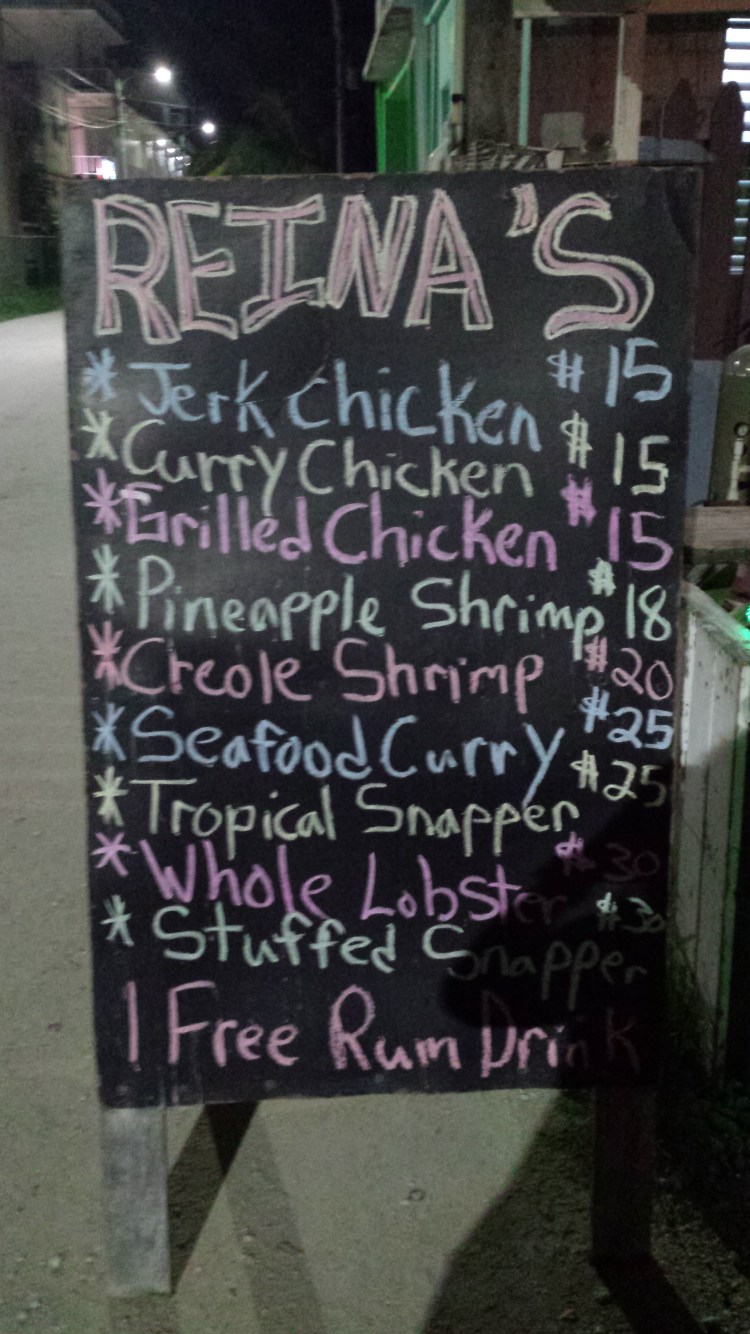 REINA'S
* Jerk Chicken $15
* Curry Chicken $15
* Grilled Chicken $15
* Pineapple Shrimp $18
* Creole Shrimp $20
* Seafood Curry $25
* Tropical Snapper $25
* Whole Lobster $30
* Stuffed Snapper $30
1 Free Rum Drink